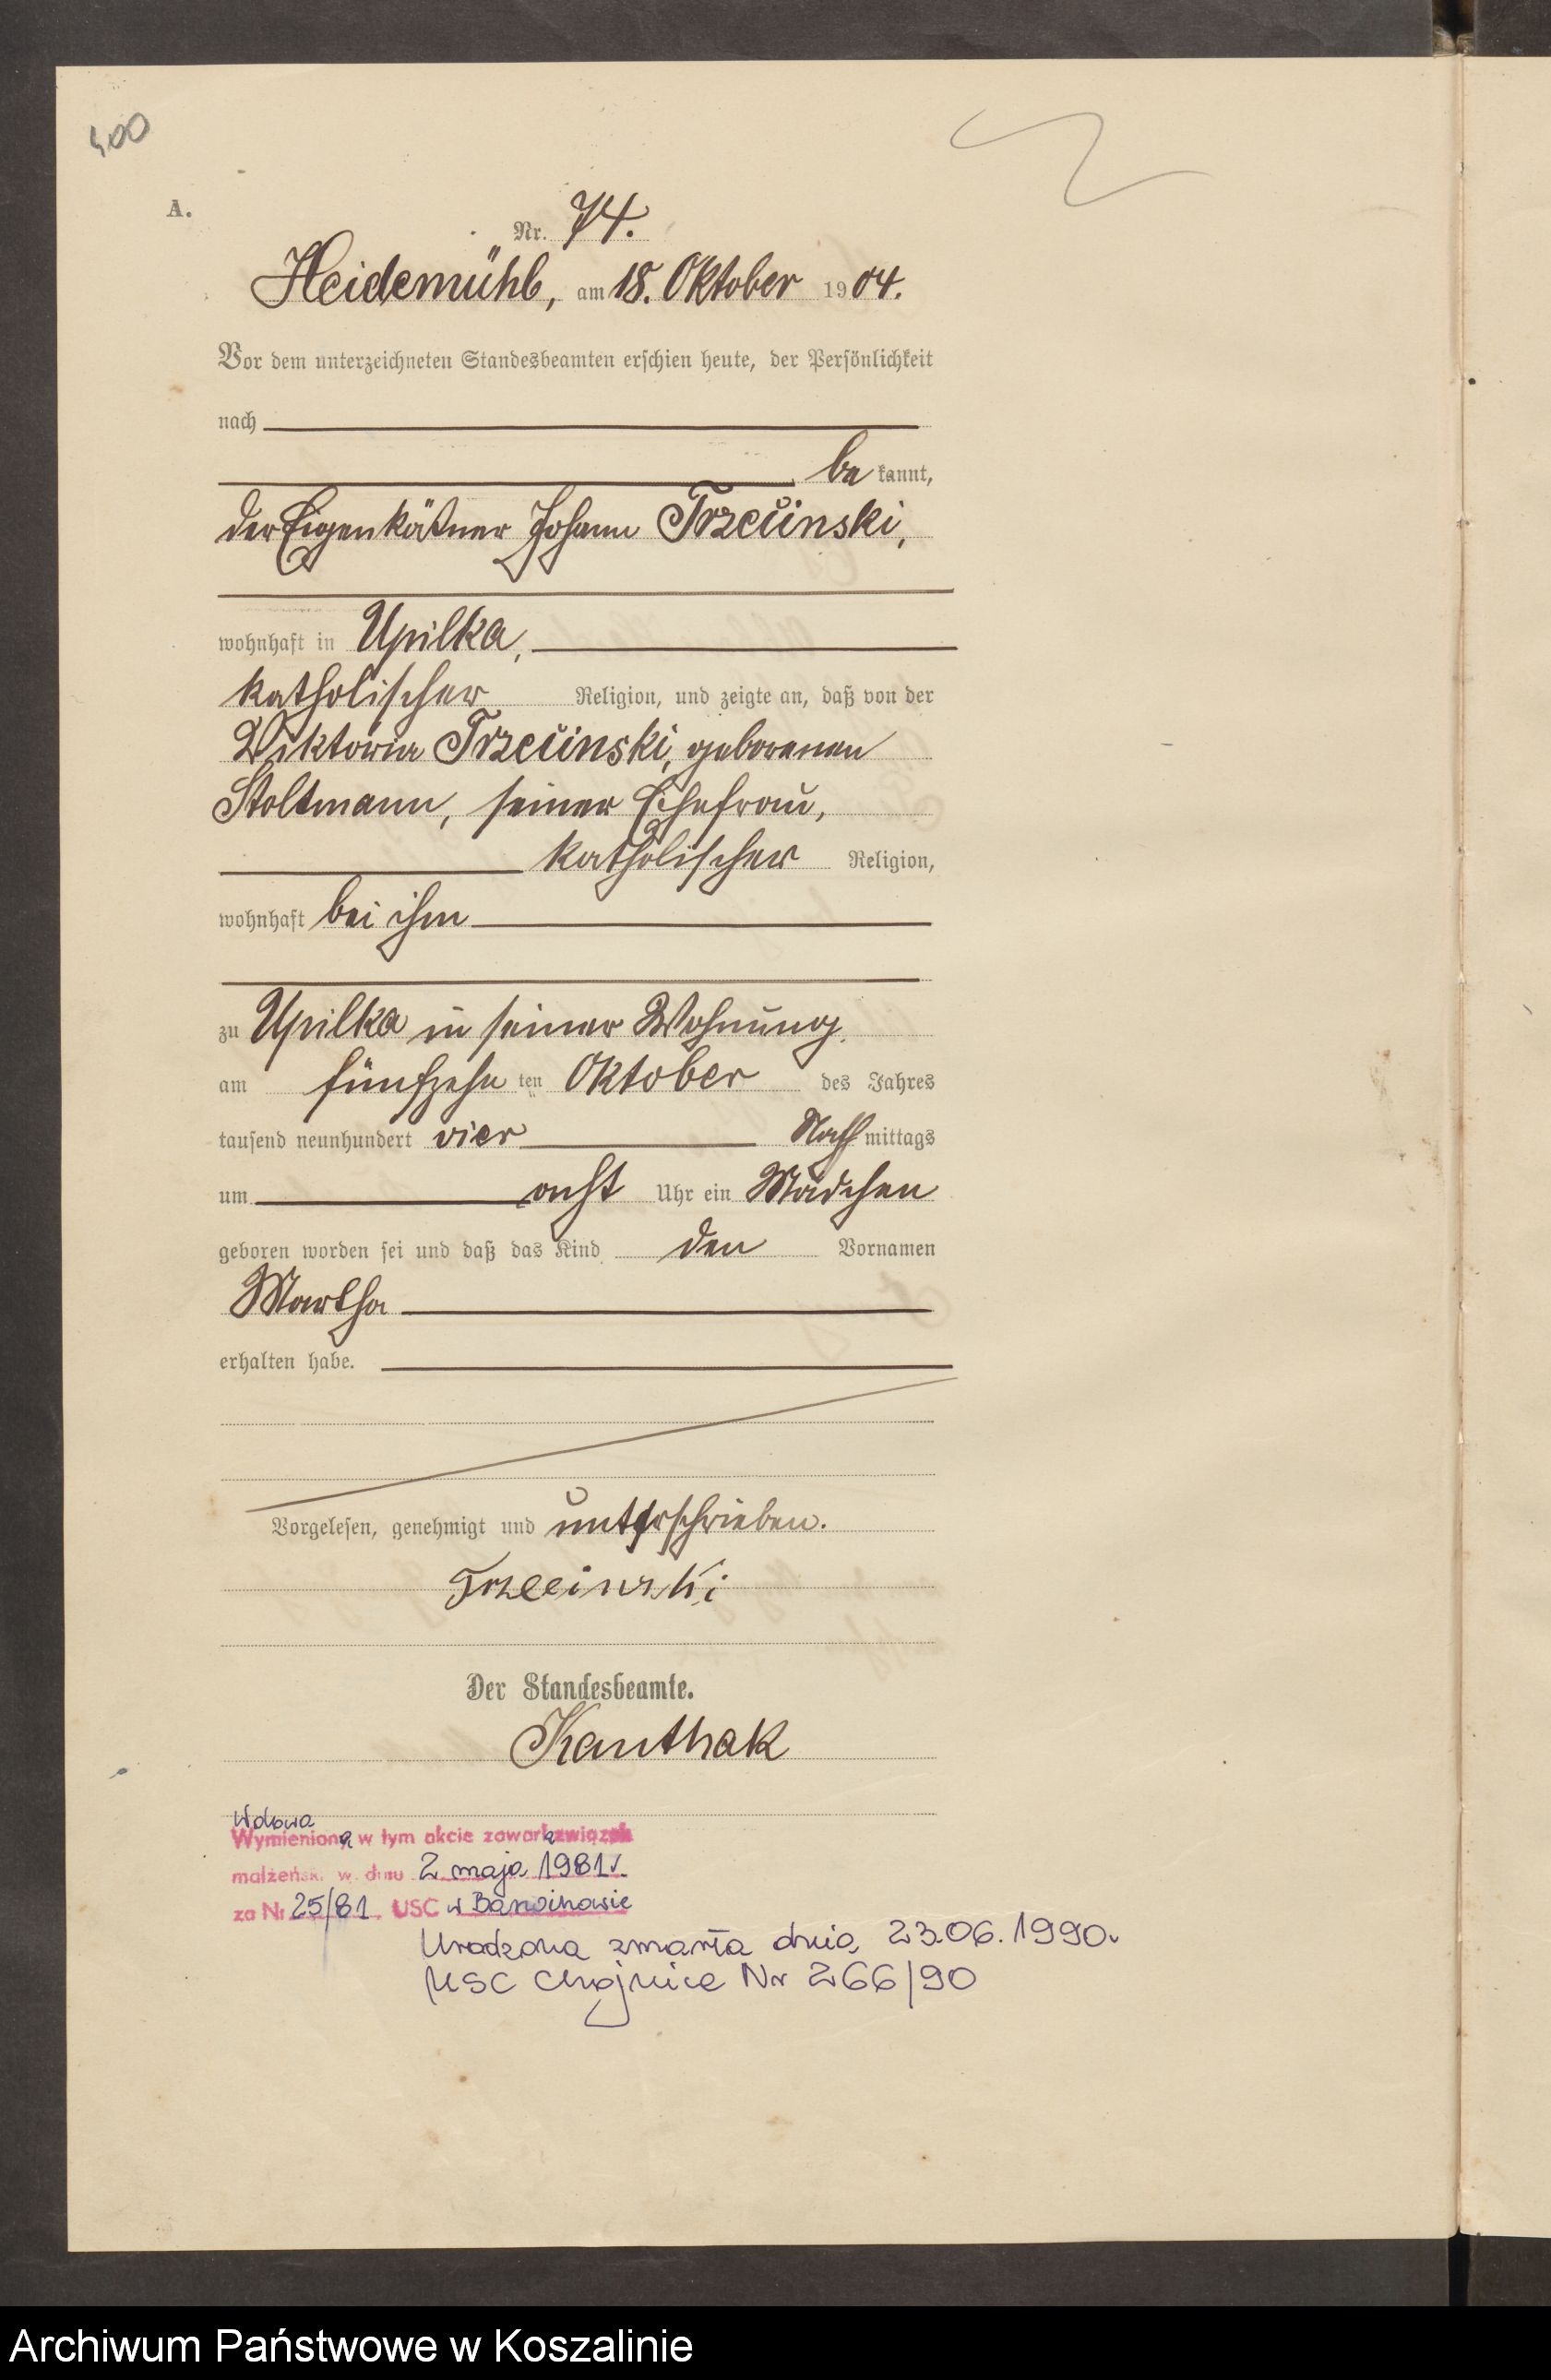 400
A.
Nr. 74.
Heidemühl, am 18. Oktober 1904.
Vor dem unterzeichneten Standesbeamten erschien heute, der Persönlichkeit
nach
be kannt,
der Eigenkätner Johann Trzcinski,
wohnhaft in Upilka,
katholischer Religion, und zeigte an, daß von der
Viktoria Trzcinski, geborenen
Stoltmann, seiner Ehefrau,
katholischer Religion,
wohnhaft bei ihm
zu Upilka in seiner Wohnung,
am fünfzehn ten Oktober des Jahres
tausend neunhundert vier Nach mittags
um acht Uhr ein Mädchen
geboren worden sei und daß das Kind den Vornamen
Martha
erhalten habe.
Vorgelesen, genehmigt und unterschrieben.
Trzcinski
Der Standesbeamte.
Kanthak
Wdowa
Wymieniona w tym akcie zawarła związek
małżeńsk. w dniu 2 maja 1981 r.
za Nr 25/81 USC w
Urodzona zmarła dnia 23.06.1990.
USC Chojnice Nr 266/90
Archiwum Państwowe w Koszalinie